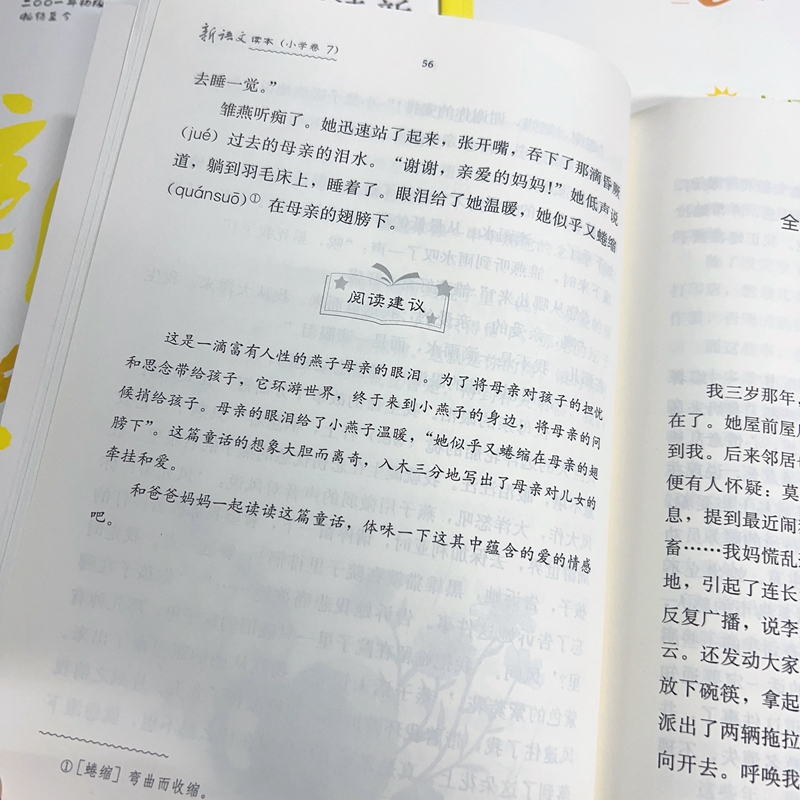 二〇〇一年初版
畅销至今
新语文读本（小学卷 7）
56
去睡一觉。”
雏燕听痴了。她迅速站了起来，张开嘴，吞下了那滴昏厥
（jué）过去的母亲的泪水。“谢谢，亲爱的妈妈！”她低声说
道，躺到羽毛床上，睡着了。眼泪给了她温暖，她似乎又蜷缩
（quánsuō）①在母亲的翅膀下。
阅读建议
这是一滴富有人性的燕子母亲的眼泪。为了将母亲对孩子的担忧
和思念带给孩子，它环游世界，终于来到小燕子的身边，将母亲的问
候捎给孩子。母亲的眼泪给了小燕子温暖，“她似乎又蜷缩在母亲的翅
膀下”。这篇童话的想象大胆而离奇，入木三分地写出了母亲对儿女的
牵挂和爱。
和爸爸妈妈一起读读这篇童话，体味一下这其中蕴含的爱的情感
吧。
①［蜷缩］弯曲而收缩。
全
我三岁那年，
在了。她屋前屋后
到我。后来邻居
便有人怀疑：莫
息，提到最近闹
畜……我妈慌乱
地，引起了连长
反复广播，说李
云。还发动大家
放下碗筷，拿起
派出了两辆拖拉
向开去。呼唤我